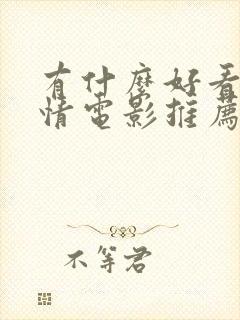 有什麼好看
情電影推薦
不等君